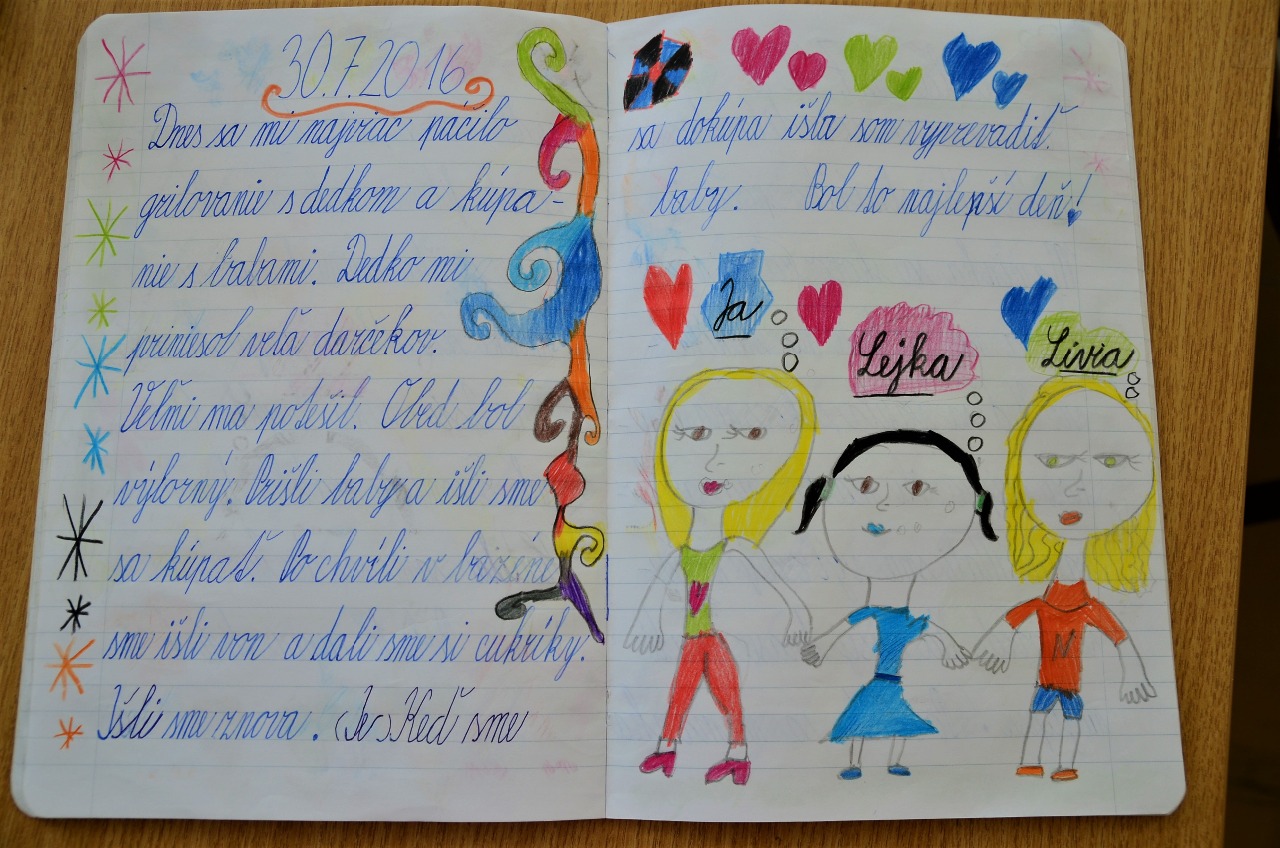 30.7.2016
Dnes sa mi najviac páčilo
grilovanie s dedkom a kúpa-
nie s babami. Dedko mi
priniesol velă darčekov.
Veľmi ma potešil. Obed bol
výborný. Prišli baby a išli sme
sa kúpať. Po chvíli v bazéne
sme išli von a dali sme si cukríky.
Išli sme znova. (Je) Keď sme
sa dokúpa išla som vyprevadiť
baby. Bol to najlepší deň!
Ja
Lejka
Livia
N